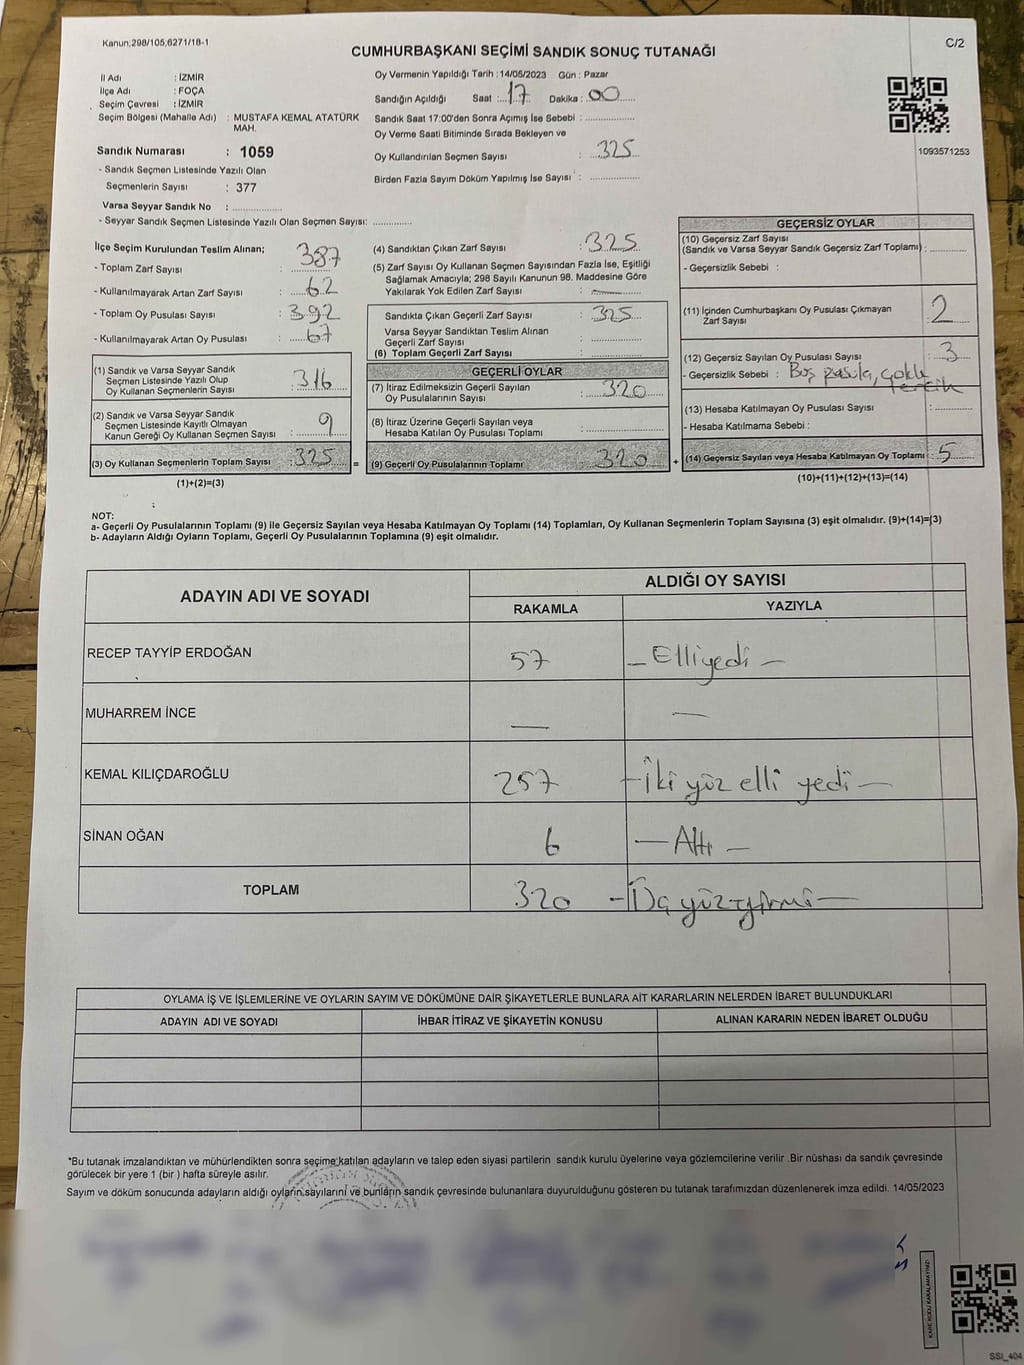 Kanun,298/105,6271/18-1
C/2
CUMHURBAŞKANI SEÇİMİ SANDIK SONUÇ TUTANAĞI
İl Adı : İZMİR
İlçe Adı : FOÇA
Seçim Çevresi : İZMİR
Seçim Bölgesi (Mahalle Adı) : MUSTAFA KEMAL ATATÜRK MAH.
Sandık Numarası : 1059
- Sandık Seçmen Listesinde Yazılı Olan
Seçmenlerin Sayısı : 377
Varsa Seyyar Sandık No :
- Seyyar Sandık Seçmen Listesinde Yazılı Olan Seçmen Sayısı:
Oy Vermenin Yapıldığı Tarih : 14/05/2023 Gün : Pazar
Sandığın Açıldığı Saat : 17 Dakika : 00
Sandık Saat 17:00'den Sonra Açımış İse Sebebi :
Oy Verme Saati Bitiminde Sırada Bekleyen ve
Oy Kullandırılan Seçmen Sayısı : 325
Birden Fazla Sayım Döküm Yapılmış İse Sayısı :
1093571253
İlçe Seçim Kurulundan Teslim Alınan;
- Toplam Zarf Sayısı : 387
- Kullanılmayarak Artan Zarf Sayısı : 62
- Toplam Oy Pusulası Sayısı : 392
- Kullanılmayarak Artan Oy Pusulası : 67
(1) Sandık ve Varsa Seyyar Sandık
Seçmen Listesinde Yazılı Olup
Oy Kullanan Seçmenlerin Sayısı : 316
(2) Sandık ve Varsa Seyyar Sandık
Seçmen Listesinde Kayıtlı Olmayan
Kanun Gereği Oy Kullanan Seçmen Sayısı : 9
(3) Oy Kullanan Seçmenlerin Toplam Sayısı : 325 =
(1)+(2)=(3)
(4) Sandıktan Çıkan Zarf Sayısı : 325
(5) Zarf Sayısı Oy Kullanan Seçmen Sayısından Fazla İse, Eşitliği
Sağlamak Amacıyla; 298 Sayılı Kanunun 98. Maddesine Göre
Yakılarak Yok Edilen Zarf Sayısı : —
Sandıkta Çıkan Geçerli Zarf Sayısı : 325
Varsa Seyyar Sandıktan Teslim Alınan
Geçerli Zarf Sayısı :
(6) Toplam Geçerli Zarf Sayısı :
GEÇERLİ OYLAR
(7) İtiraz Edilmeksizin Geçerli Sayılan
Oy Pusulalarının Sayısı : 320
(8) İtiraz Üzerine Geçerli Sayılan veya
Hesaba Katılan Oy Pusulası Toplamı :
(9) Geçerli Oy Pusulalarının Toplamı : 320 +
GEÇERSİZ OYLAR
(10) Geçersiz Zarf Sayısı
(Sandık ve Varsa Seyyar Sandık Geçersiz Zarf Toplamı) :
- Geçersizlik Sebebi :
(11) İçinden Cumhurbaşkanı Oy Pusulası Çıkmayan
Zarf Sayısı : 2
(12) Geçersiz Sayılan Oy Pusulası Sayısı : 3
- Geçersizlik Sebebi : Boş pusula, çoklu
tercih
(13) Hesaba Katılmayan Oy Pusulası Sayısı :
- Hesaba Katılmama Sebebi :
(14) Geçersiz Sayılan veya Hesaba Katılmayan Oy Toplamı : 5
(10)+(11)+(12)+(13)=(14)
NOT:
a- Geçerli Oy Pusulalarının Toplamı (9) ile Geçersiz Sayılan veya Hesaba Katılmayan Oy Toplamı (14) Toplamları, Oy Kullanan Seçmenlerin Toplam Sayısına (3) eşit olmalıdır. (9)+(14)=(3)
b- Adayların Aldığı Oyların Toplamı, Geçerli Oy Pusulalarının Toplamına (9) eşit olmalıdır.
ADAYIN ADI VE SOYADI ALDIĞI OY SAYISI
RAKAMLA YAZIYLA
RECEP TAYYİP ERDOĞAN 57 — Elliyedi —
MUHARREM İNCE — —
KEMAL KILIÇDAROĞLU 257 — İki yüz elli yedi —
SİNAN OĞAN 6 — Altı —
TOPLAM 320 — Üç yüz yirmi —
OYLAMA İŞ VE İŞLEMLERİNE VE OYLARIN SAYIM VE DÖKÜMÜNE DAİR ŞİKAYETLERLE BUNLARA AİT KARARLARIN NELERDEN İBARET BULUNDUKLARI
ADAYIN ADI VE SOYADI İHBAR İTİRAZ VE ŞİKAYETİN KONUSU ALINAN KARARIN NEDEN İBARET OLDUĞU
*Bu tutanak imzalandıktan ve mühürlendikten sonra seçime katılan adayların ve talep eden siyasi partilerin sandık kurulu üyelerine veya gözlemcilerine verilir .Bir nüshası da sandık çevresinde
görülecek bir yere 1 (bir ) hafta süreyle asılır.
Sayım ve döküm sonucunda adayların aldığı oyların sayılarını ve bunların sandık çevresinde bulunanlara duyurulduğunu gösteren bu tutanak tarafımızdan düzenlenerek imza edildi. 14/05/2023
KARE KODU KARALAMAYINIZ!
SSI_404